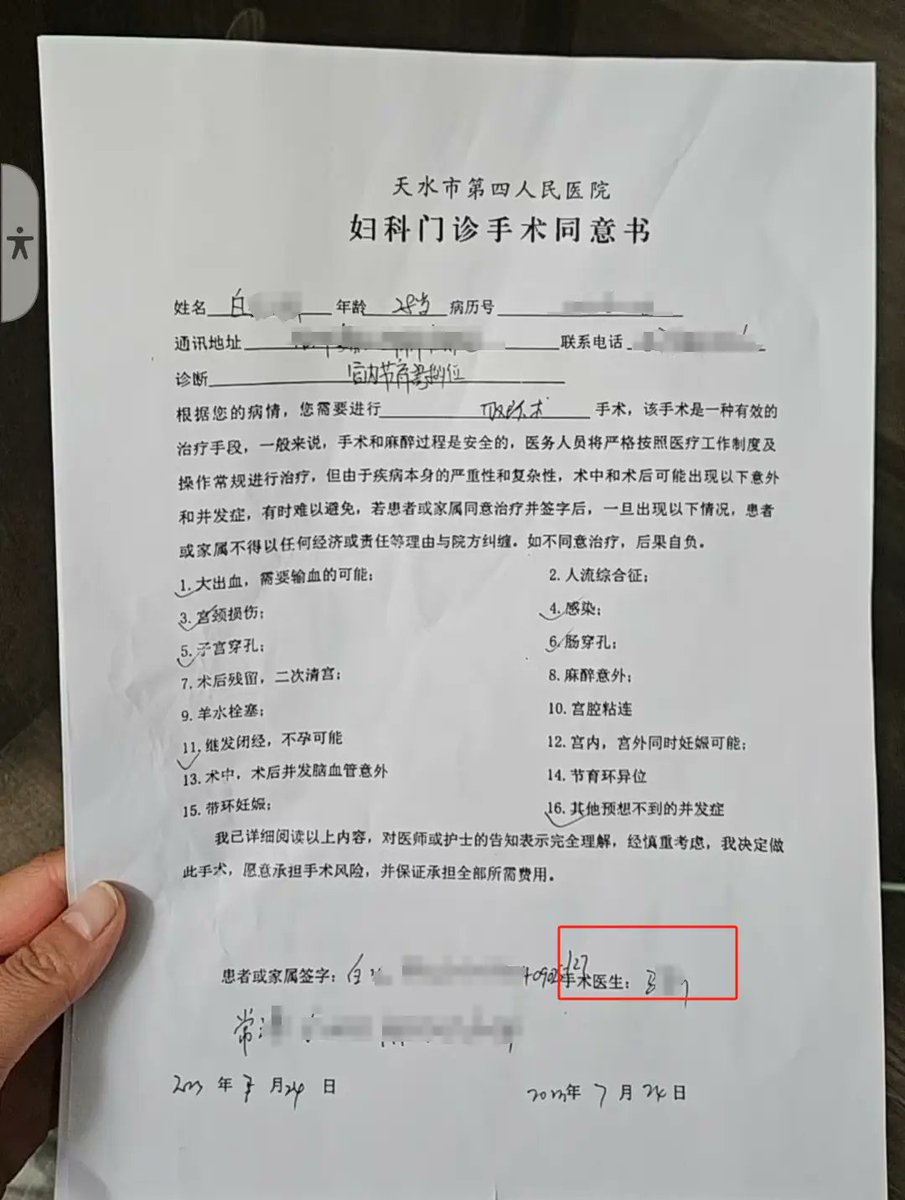 天水市第四人民医院
妇科门诊手术同意书
姓名 白 年龄 28岁 病历号
通讯地址 联系电话
诊断 宫内节育器
根据您的病情，您需要进行 取环术 手术，该手术是一种有效的
治疗手段，一般来说，手术和麻醉过程是安全的，医务人员将严格按照医疗工作制度及
操作常规进行治疗，但由于疾病本身的严重性和复杂性，术中和术后可能出现以下意外
和并发症，有时难以避免，若患者或家属同意治疗并签字后，一旦出现以下情况，患者
或家属不得以任何经济或责任等理由与院方纠缠．如不同意治疗，后果自负。
1. 大出血，需要输血的可能； 2. 人流综合征；
3. 宫颈损伤； 4. 感染；
5. 子宫穿孔； 6. 肠穿孔；
7. 术后残留，二次清宫； 8. 麻醉意外；
9. 羊水栓塞； 10. 宫腔粘连
11. 继发闭经，不孕可能 12. 宫内，宫外同时妊娠可能；
13. 术中，术后并发脑血管意外 14. 节育环异位
15. 带环妊娠； 16. 其他预想不到的并发症
我已详细阅读以上内容，对医师或护士的告知表示完全理解，经慎重考虑，我决定做
此手术，愿意承担手术风险，并保证承担全部所需费用。
患者或家属签字： 白 手术医生：
常
年 月 24 日 年 7 月 24 日